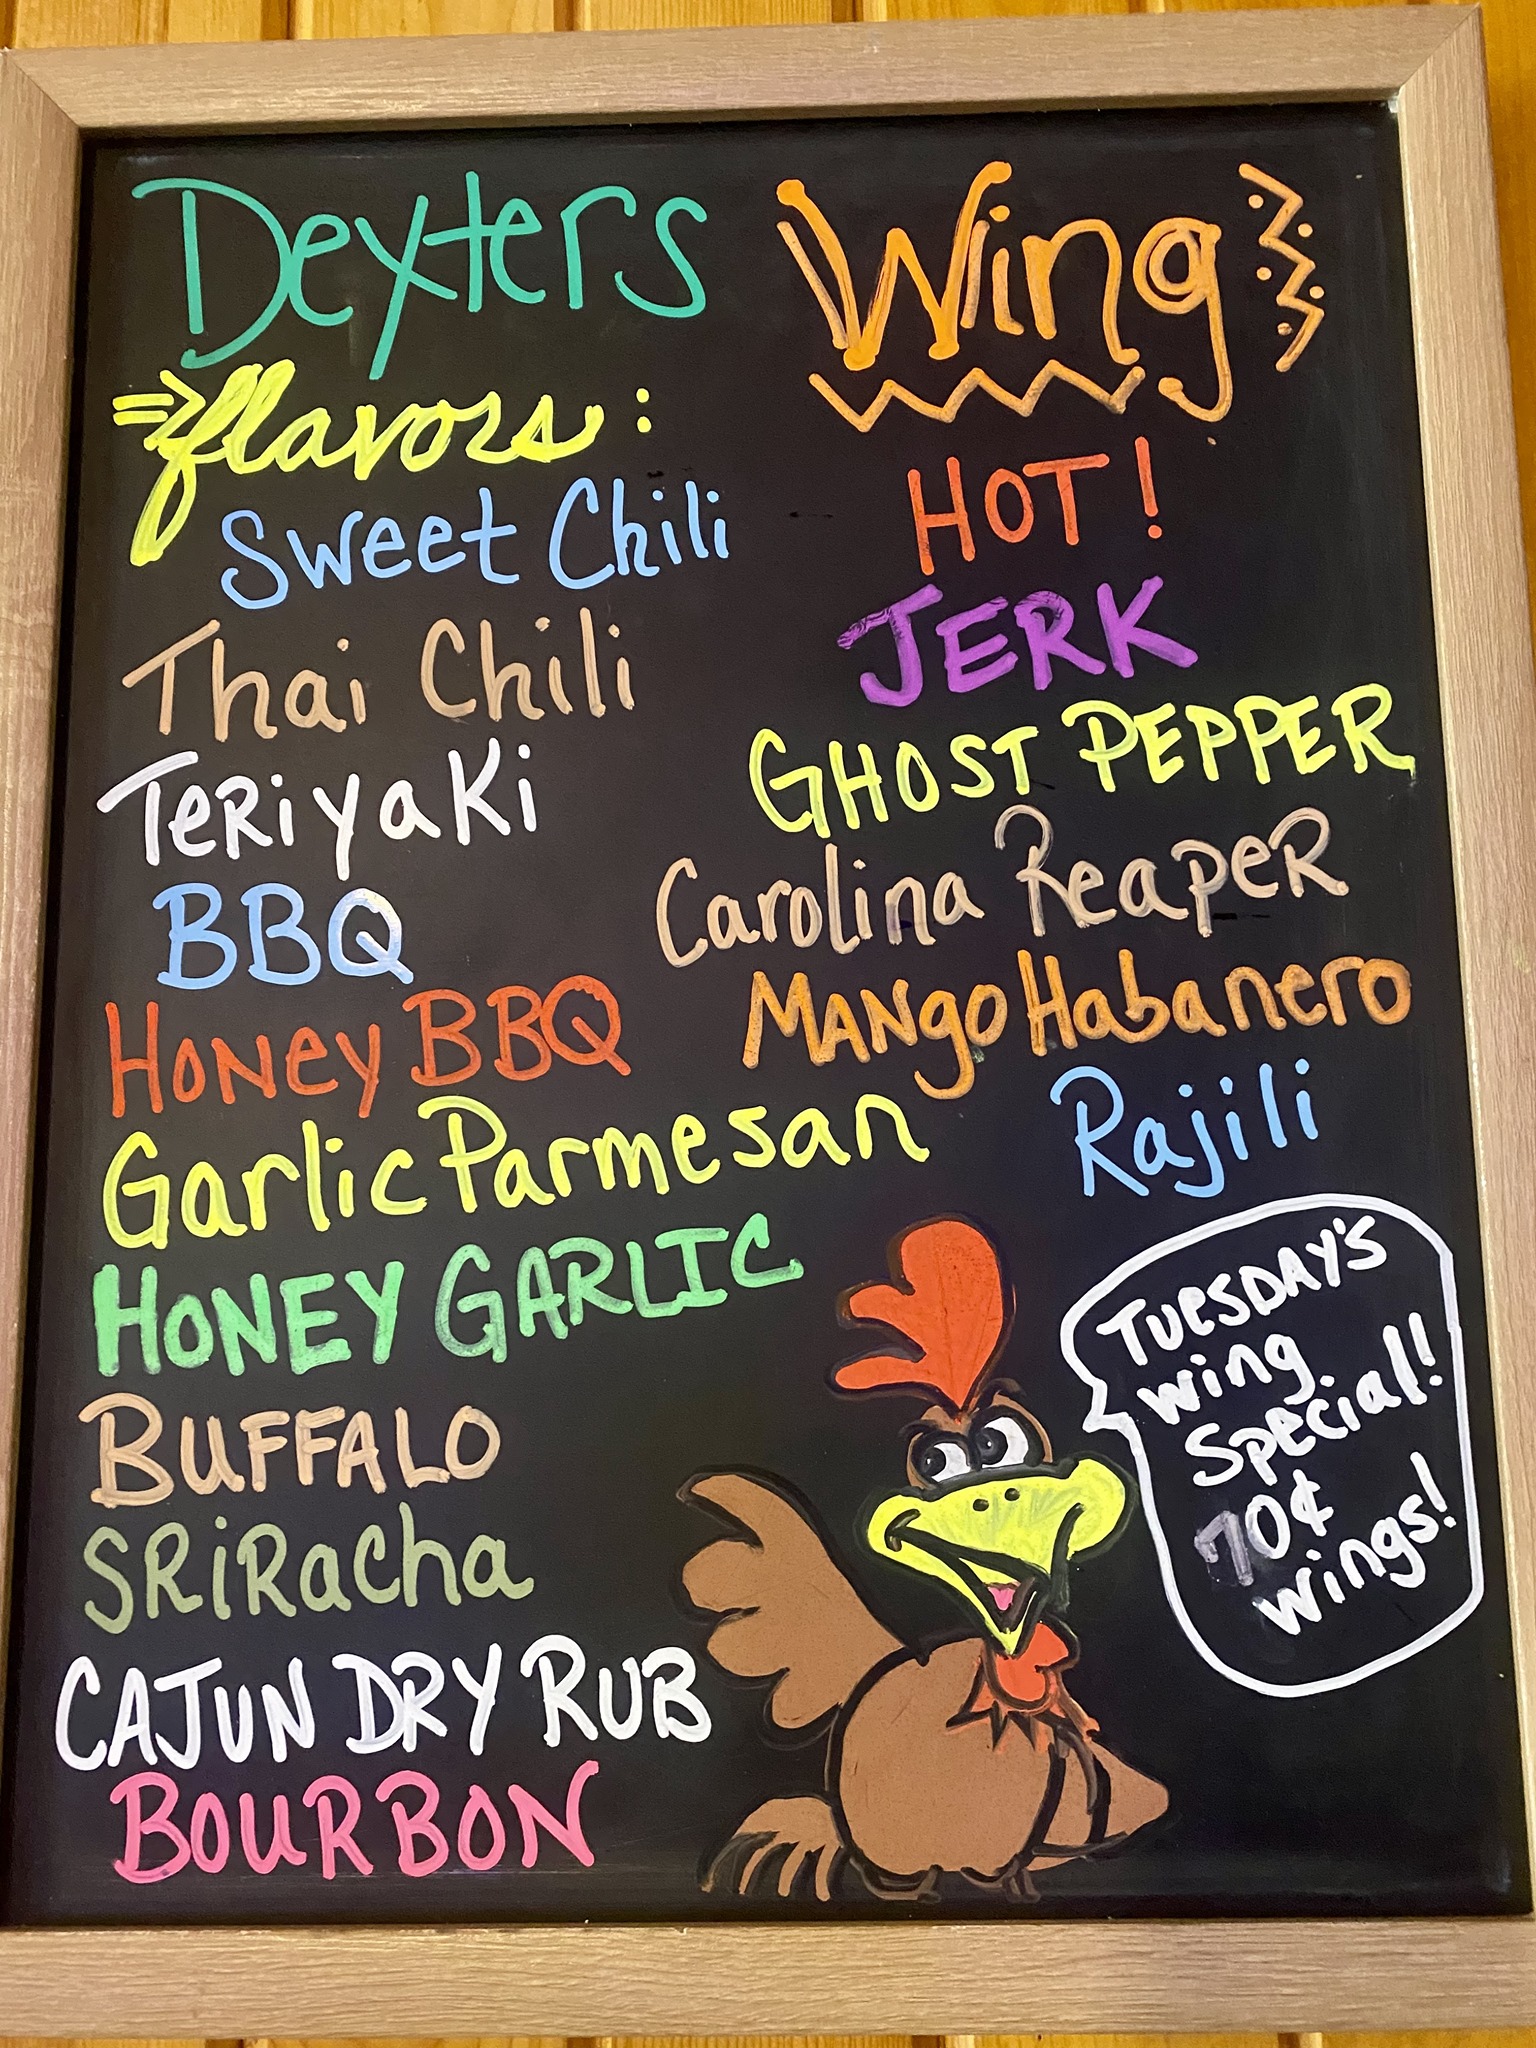 Dexters Wing
⇒flavors:
Sweet Chili
Thai Chili
TeRiyaKi
BBQ
HoNey BBQ
Garlic Parmesan
HONEY GARLIC
BUFFALO
SRiRacha
CAJUN DRY RUB
BOURBON
HOT!
JERK
GHOST PEPPER
Carolina ReapeR
MANgo Habanero
Rajili
TUeSDAY'S
wing
Special!
70¢
wings!